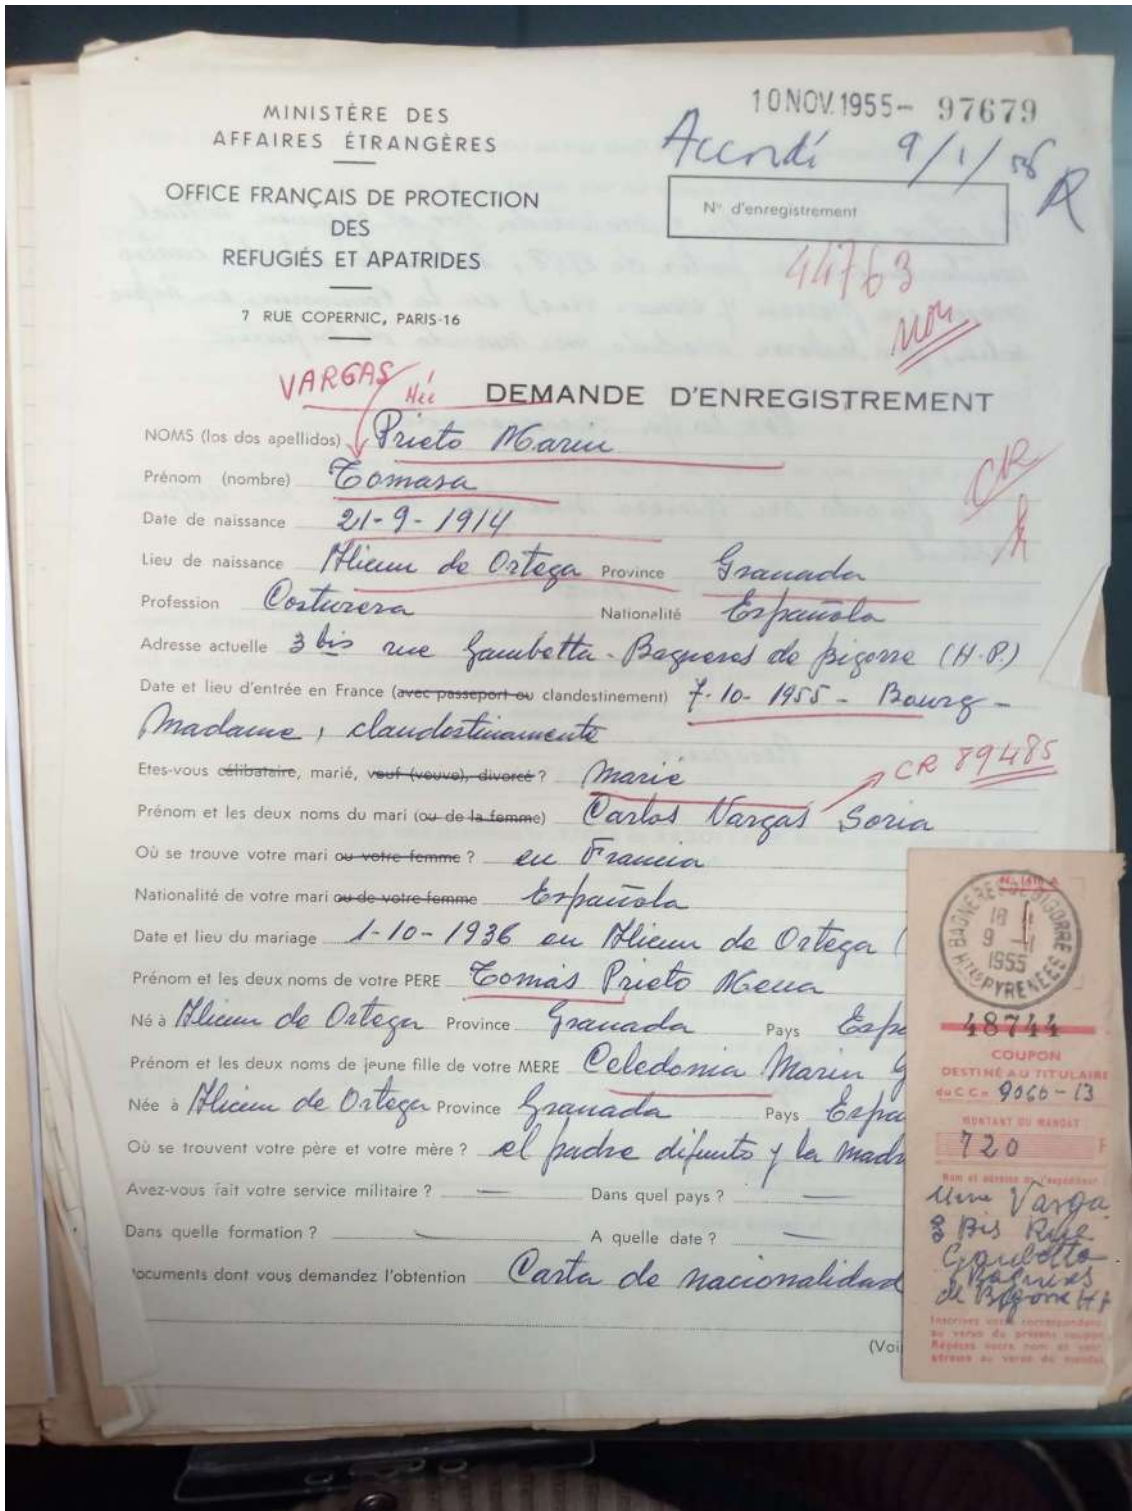 MINISTÈRE DES
AFFAIRES ÉTRANGÈRES
OFFICE FRANÇAIS DE PROTECTION
DES
REFUGIÉS ET APATRIDES
7 RUE COPERNIC, PARIS-16
10 NOV. 1955 - 97679
Accordé 9/1/56 R
N° d'enregistrement
44763
non
VARGAS Née
DEMANDE D'ENREGISTREMENT
NOMS (los dos apellidos) Prieto Marin
Prénom (nombre) Tomasa
CR
Date de naissance 21-9-1914
Lieu de naissance Alicun de Ortega Province Granada
Profession Costurera Nationalité Española
Adresse actuelle 3 bis rue Gambetta - Bagneres de Bigorre (H.P.)
Date et lieu d'entrée en France (avec passeport ou clandestinement) 7-10-1955 - Bourg-
Madame, clandestinamente
Etes-vous célibataire, marié, veuf (veuve), divorcé ? Marié
CR 89485
Prénom et les deux noms du mari (ou de la femme) Carlos Vargas Soria
Où se trouve votre mari ou votre femme ? en Francia
Nationalité de votre mari ou de votre femme Española
Date et lieu du mariage 1-10-1936 en Alicun de Ortega (
Prénom et les deux noms de votre PERE Tomás Prieto Mena
Né à Alicun de Ortega Province Granada Pays Espa
Prénom et les deux noms de jeune fille de votre MERE Celedonia Marin G
Née à Alicun de Ortega Province Granada Pays Espa
Où se trouvent votre père et votre mère ? el padre difunto y la madr
Avez-vous fait votre service militaire ? — Dans quel pays ? —
Dans quelle formation ? — A quelle date ? —
ocuments dont vous demandez l'obtention Carta de nacionalidad
(Voi
BAGNERES-DE-BIGORRE
18
9 -11
1955
HTES PYRENEES
48744
COUPON
DESTINÉ AU TITULAIRE
du C C n° 9060-13
MONTANT DU MANDAT
720 F
Nom et adresse de l'expéditeur
Mme Varga
3 Bis Rue
Gambetta
Bagneres
de Bigorre H P
Inscrivez votre correspondance
au verso du présent coupon
Répétez votre nom et votre
adresse au verso du mandat